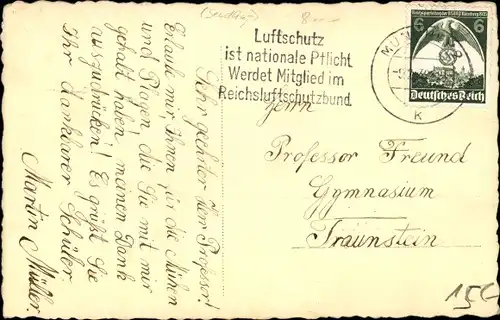 Luftschutz
ist nationale Pflicht
Werdet Mitglied im
Reichsluftschutzbund
MÜN
k
6 6
Deutsches Reich
Herrn
Professor Freund
Gymnasium
Traunstein
Sehr geehrter Herr Professor!
Erlaube mir, Ihnen für die Mühen
und Plagen die Sie mit mir
gehabt haben meinen Dank
auszudrücken! Es grüßt Sie
Ihr dankbarer Schüler
Martin Müller.
15E